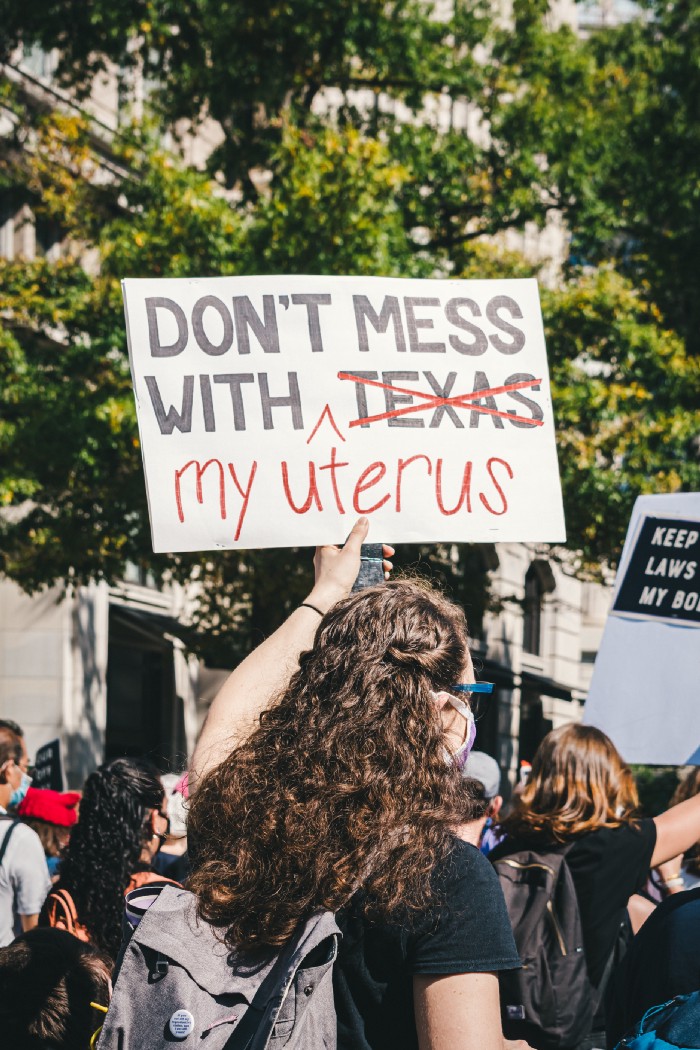 DON'T MESS
WITH ^ TEXAS
my uterus
KEEP
LAWS
MY BO